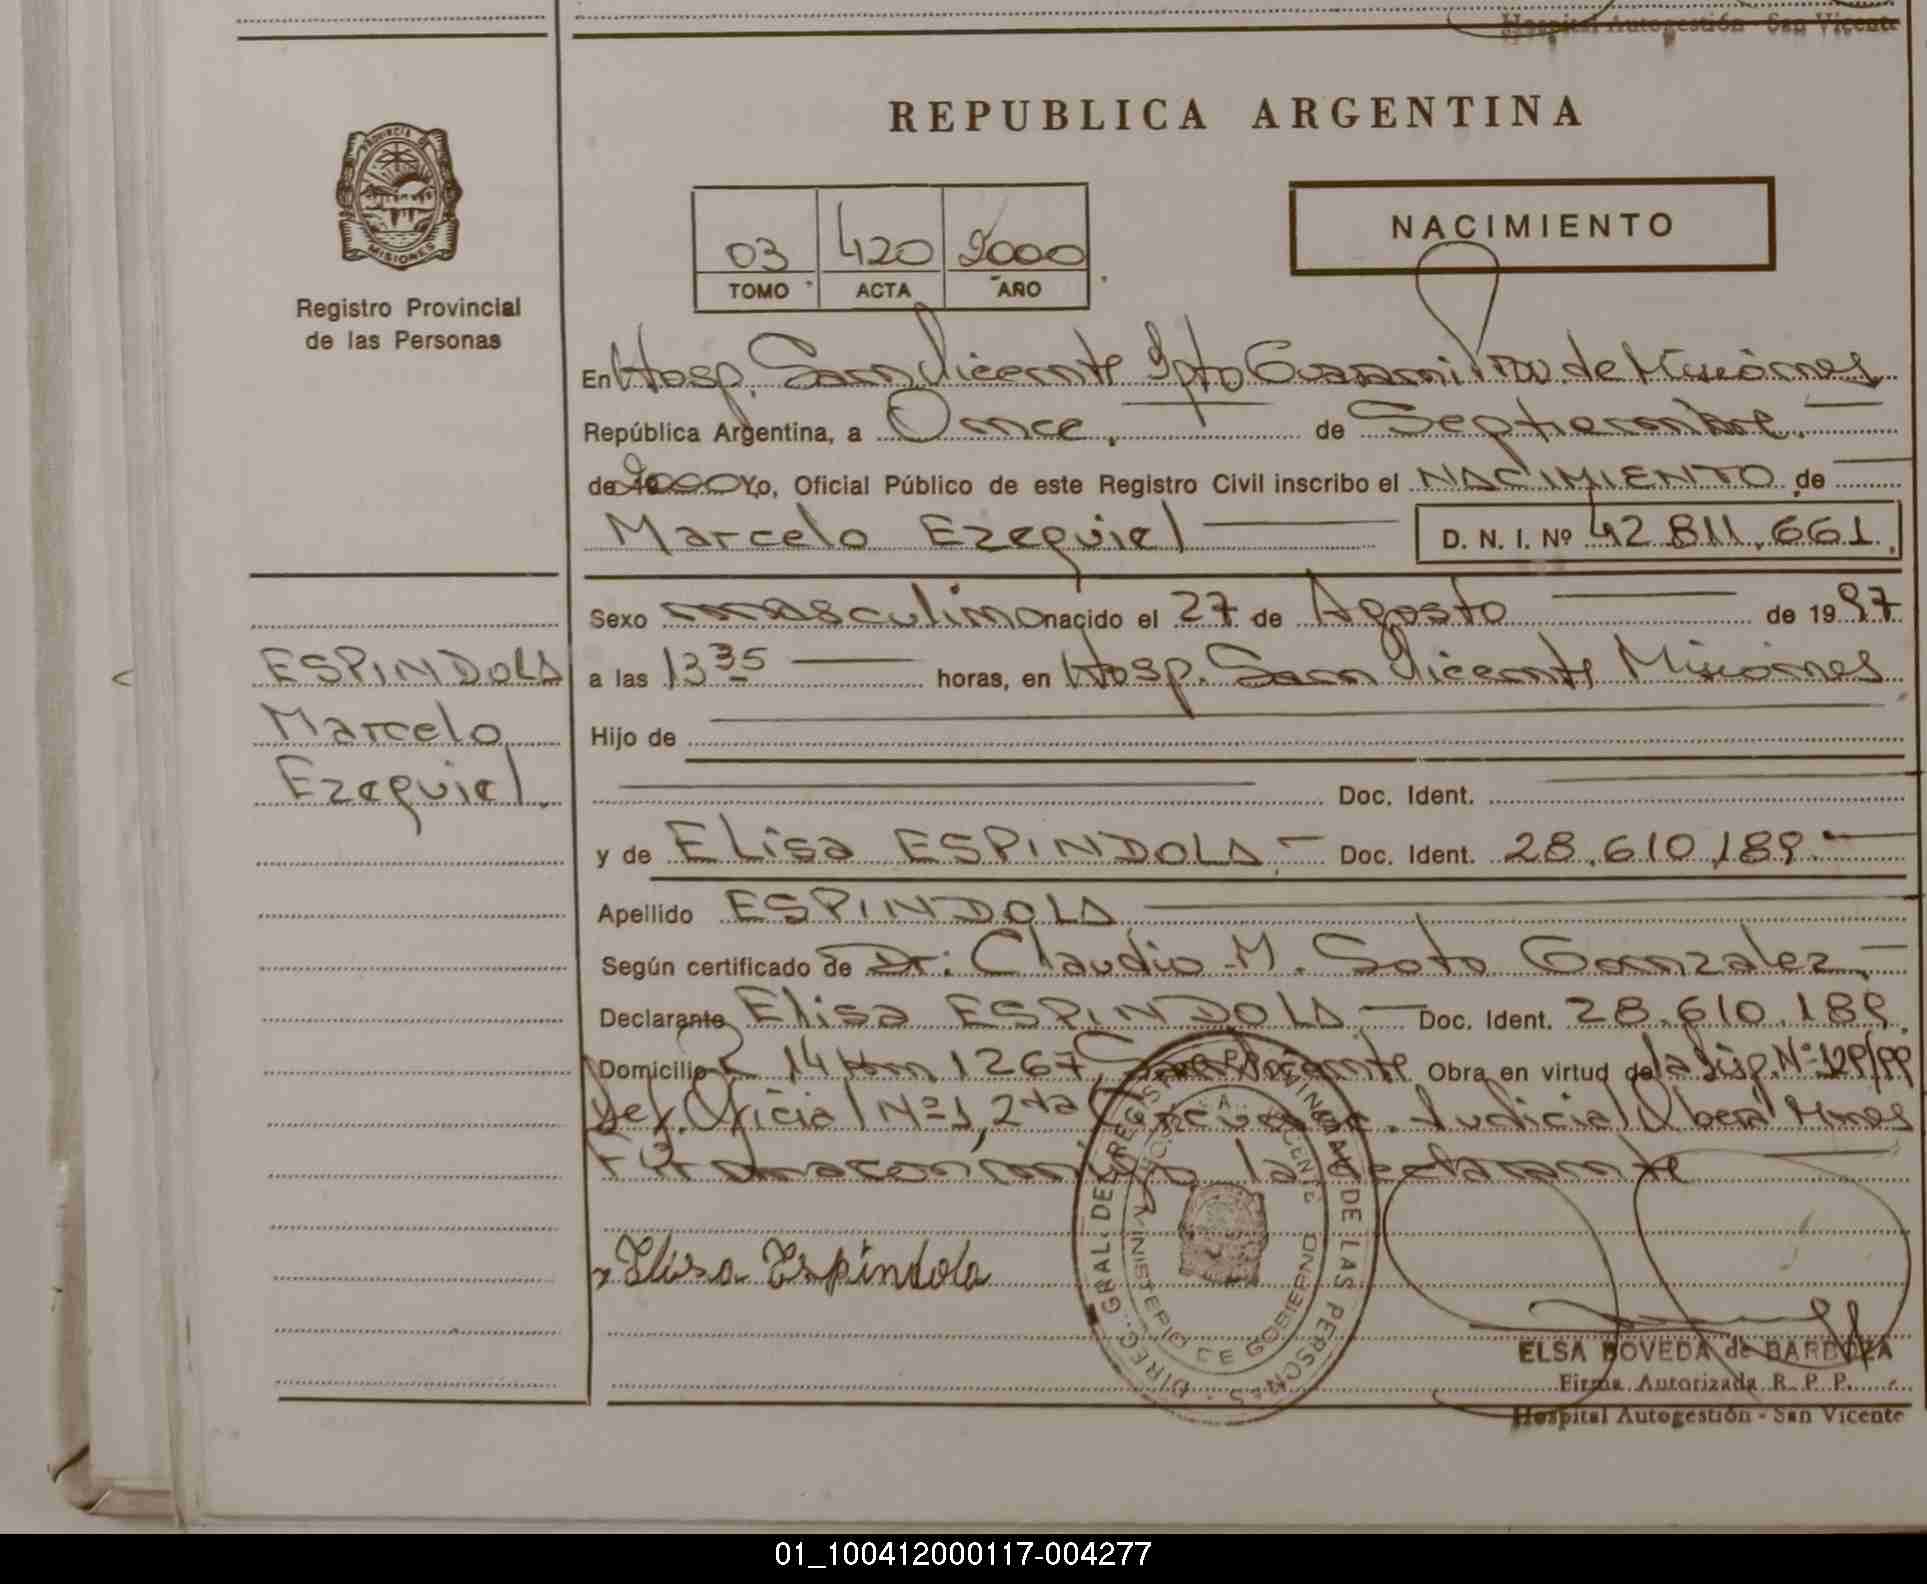 Hospital Autogestión - San Vicente
REPUBLICA ARGENTINA
PROVINCIA DE
MISIONES
Registro Provincial
de las Personas
03 420 2000
TOMO ACTA AÑO
NACIMIENTO
En Hosp. San Vicente Dpto Guarani Prov. de Misiones
República Argentina, a Once, de Septiembre.
de 2000 Yo, Oficial Público de este Registro Civil inscribo el NACIMIENTO de
Marcelo Ezequiel D. N. I. Nº 42.811.661.
Sexo masculino nacido el 27 de Agosto de 1997
ESPINDOLA
Marcelo
Ezequiel.
a las 13 35 horas, en Hosp. San Vicente Misiones
Hijo de
Doc. Ident.
y de Elisa ESPINDOLA - Doc. Ident. 28.610.189.-
Apellido ESPINDOLA
Según certificado de Dr: Claudio M. Soto Gonzalez.-
Declarante Elisa ESPINDOLA - Doc. Ident. 28.610.189.
Domicilio 14 Km 1267, San Vicente Obra en virtud de la Disp. Nº
Def. Oficial Nº 1, 2da Circunsc. Judicial Oberá Mnes
Firma conmigo la declarante
Elisa Espindola
DIREC. GRAL. DEL REGISTRO PROVINCIAL DE LAS PERSONAS
MINISTERIO DE GOBIERNO
ELSA BOVEDA de BARBOZA
Firma Autorizada R. P. P.
Hospital Autogestión - San Vicente
01_100412000117-004277